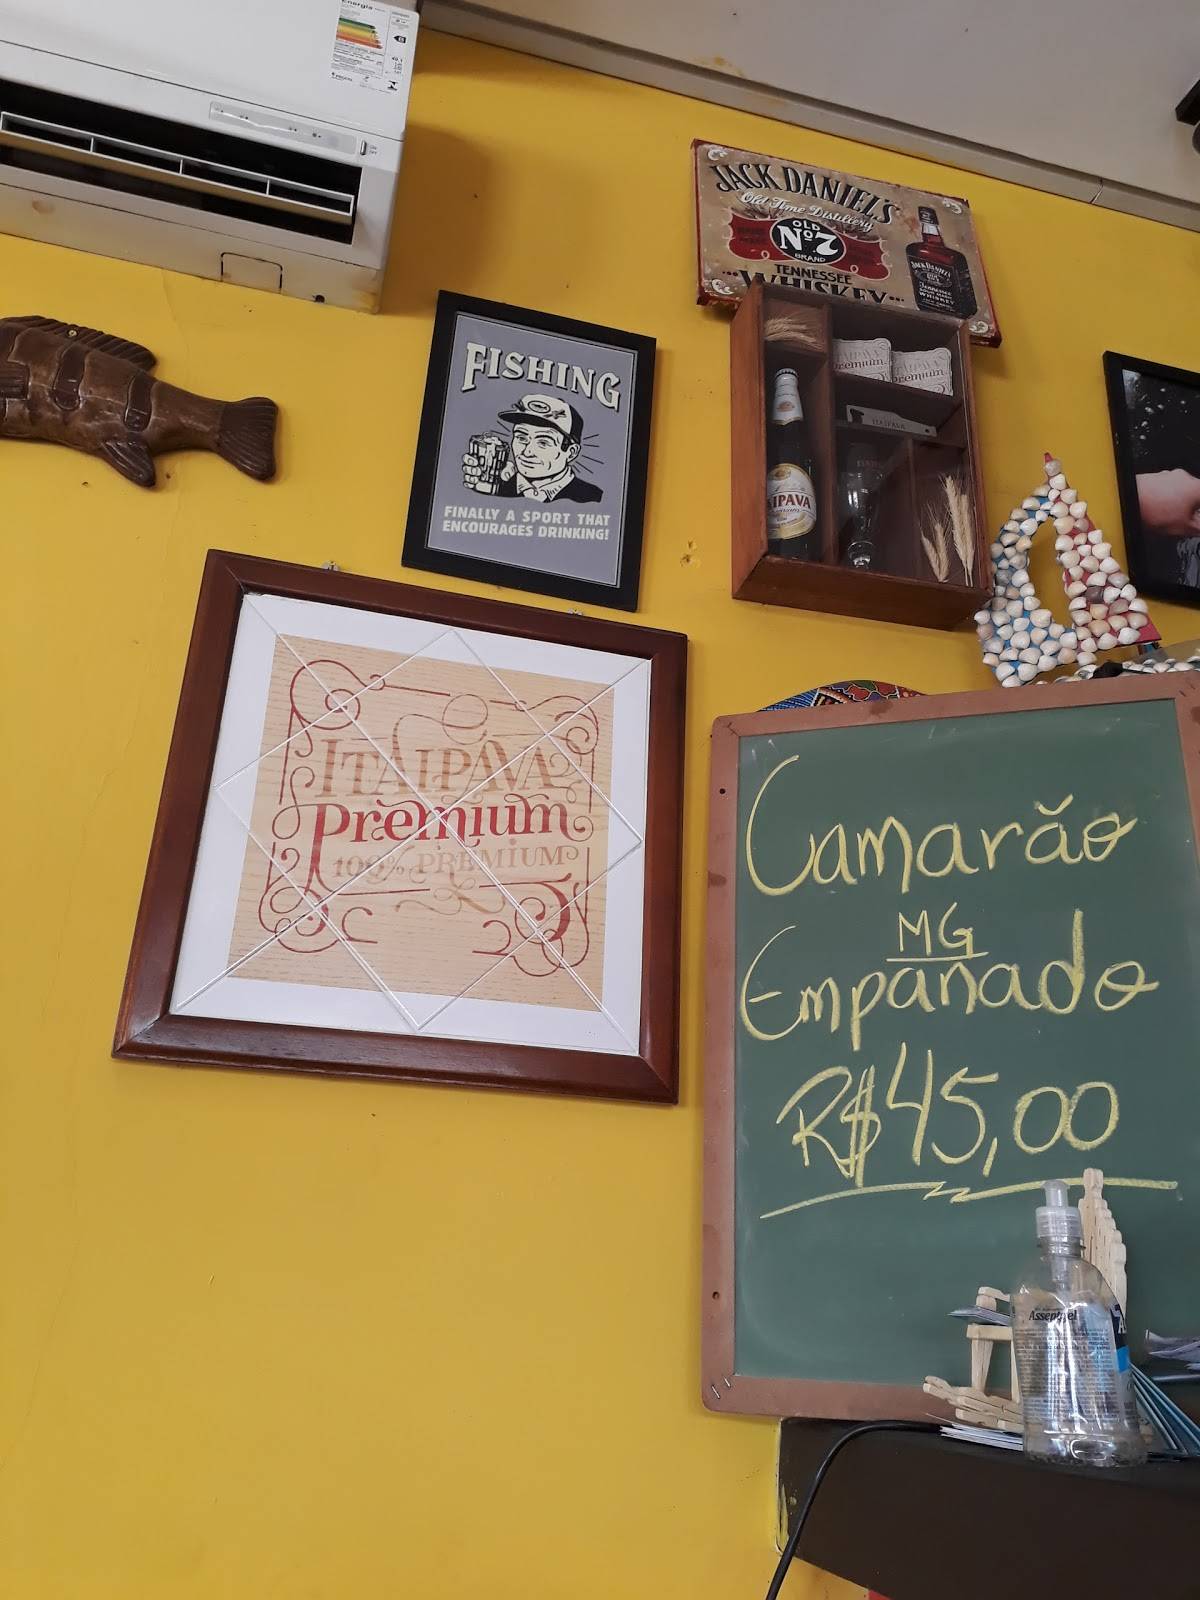 Energia
JACK DANIEL'S
Old Time Distillery
OLD
Nº7
BRAND
TENNESSEE
WHISKEY
FISHING
FINALLY A SPORT THAT
ENCOURAGES DRINKING!
ITAIPAVA
Premium
Premium
ITAIPAVA
AIPAVA
ITAIPAVA
Premium
100% PREMIUM
Camarão
MG
Empanado
R$45,00
Asseptgel